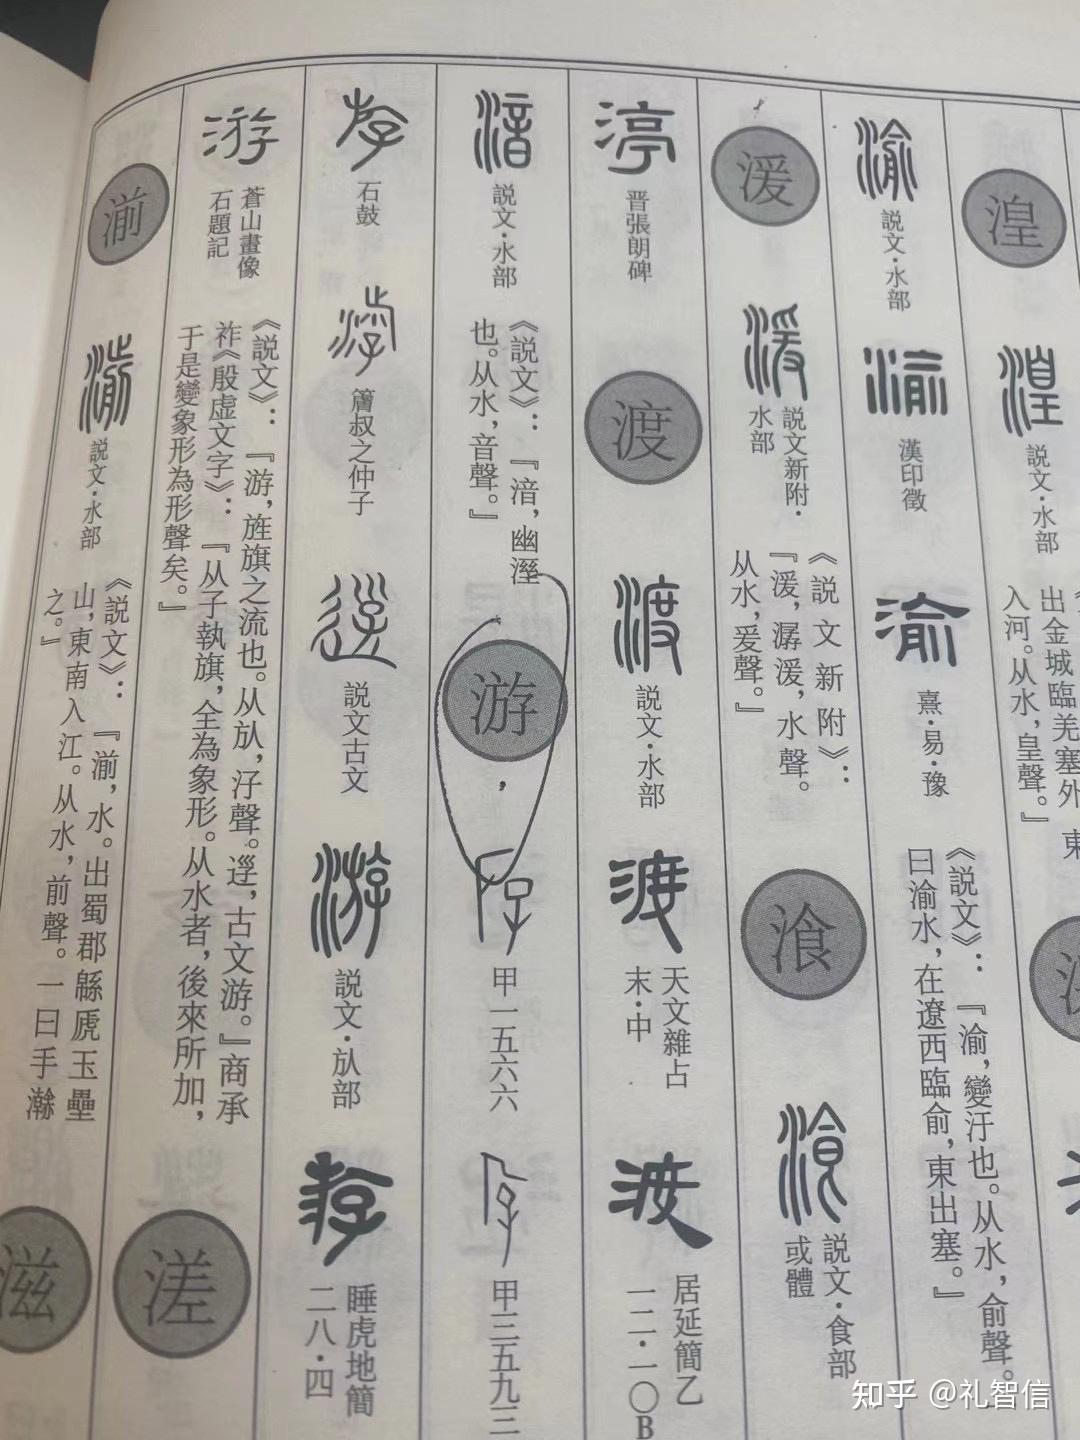 湟
湟
説文·水部
出金城臨羌塞外
東
入河。从水,皇聲。』
渝
説文·水部
渝
漢印徵
渝
熹·易·豫
《説文》：『渝,變汙也。从水,俞聲。
曰渝水,在遼西臨俞,東出塞。』
湲
湲
説文新附·
水部
《説文新附》：
『湲,潺湲,水聲。
从水,爰聲。』
湌
湌
説文·食部
或體
渟
晋張朗碑
渡
渡
説文·水部
渡
天文雜占
末·中
渡
居延簡乙
一二·一〇B
湆
説文·水部
《説文》：『湆,幽溼
也。从水,音聲。』
游
，
甲一五六六
甲三五九三
石鼓
簷叔之仲子
逰
説文古文
游
説文·㫃部
游
睡虎地簡
二八·四
游
蒼山畫像
石題記
《説文》：『游,旌旗之流也。从㫃,汓聲。逰,古文游。』商承
祚《殷虚文字》：『从子執旗,全為象形。从水者,後來所加,
于是變象形為形聲矣。』
溠
湔
湔
説文·水部
《説文》：『湔,水。出蜀郡緜虒玉壘
山,東南入江。从水,前聲。一曰手瀚
之。』
滋
知乎 @礼智信